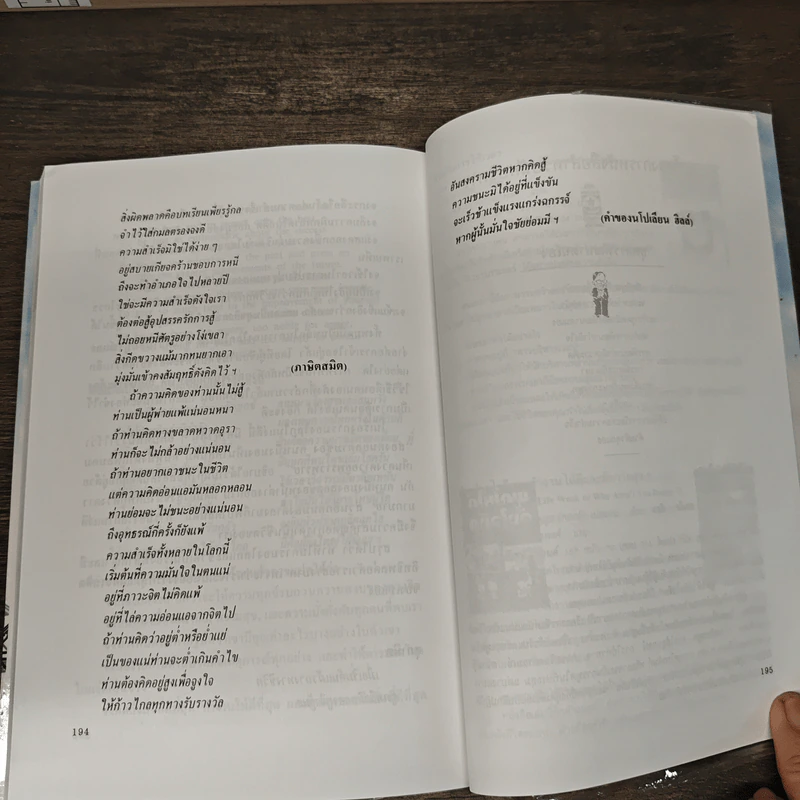 สิ่งผิดพลาดคือบทเรียนเพียรรู้กล
จำไว้ใส่กมลตรองจงดี
ความสำเร็จมิใช่ได้ง่าย ๆ
อยู่สบายเกียจคร้านชอบการหนี
ถึงจะทำอำเภอใจไปหลายปี
ใช่จะมีความสำเร็จดังใจเรา
ต้องต่อสู้อุปสรรครักการสู้
ไม่ถอยหนีศัตรูอย่างโง่เขลา
สิ่งกีดขวางแม้มากทนยากเอา
มุ่งมั่นเข้าคงสัมฤทธิ์ดังคิดไว้ ฯ
(ภาษิตสมิต)
ถ้าความคิดของท่านนั้นไม่สู้
ท่านเป็นผู้พ่ายแพ้แน่นอนหนา
ถ้าท่านคิดทางขลาดหวาดอุรา
ท่านก็จะไม่กล้าอย่างแน่นอน
ถ้าท่านอยากเอาชนะในชีวิต
แต่ความคิดอ่อนแอมันหลอกหลอน
ท่านย่อมจะไม่ชนะอย่างแน่นอน
ถึงอุทธรณ์กี่ครั้งก็ยังแพ้
ความสำเร็จทั้งหลายในโลกนี้
เริ่มต้นที่ความมั่นใจในตนแน่
อยู่ที่ภาวะจิตไม่คิดแพ้
อยู่ที่ไล่ความอ่อนแอจากจิตไป
ถ้าท่านคิดว่าอยู่ต่ำหรือย่ำแย่
เป็นของแน่ท่านจะต่ำเกินคำไข
ท่านต้องคิดอยู่สูงเพื่อจูงใจ
ให้ก้าวไกลทุกทางรับรางวัล
194
อันสงครามชีวิตหากคิดสู้
ความชนะมิได้อยู่ที่แข็งขัน
จะเร็วช้าแข็งแรงแกร่งฉกรรจ์
หากผู้นั้นมั่นใจชัยย่อมมี ฯ
(คำของนโปเลียน ฮิลล์)
195